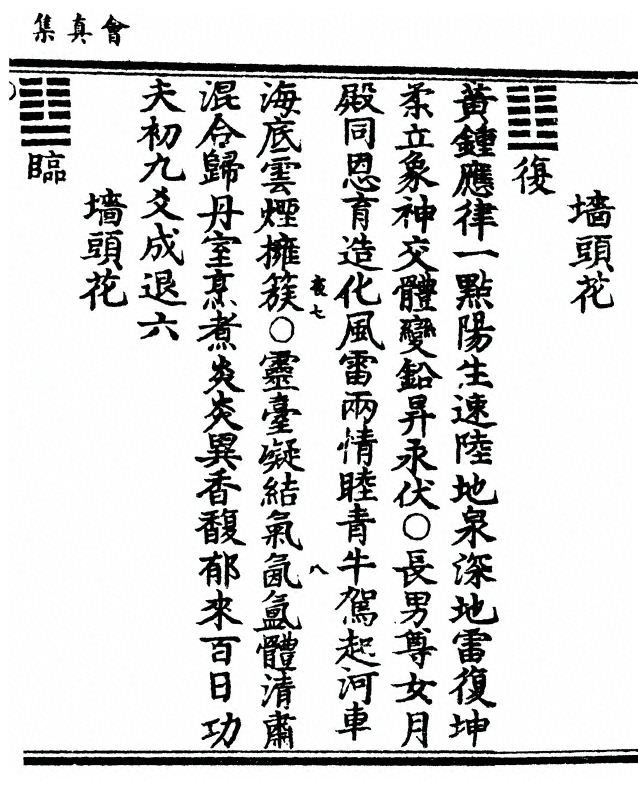 會真集
墻頭花
復
黃鍾應律一點陽生速陸地泉深地雷復坤
柔立象神交體變鉛昇汞伏○長男尊女月
殿同恩育造化風雷兩情睦青牛駕起河車
夜七
八
海底雲煙擁簇○靈臺凝結氣氤氳體清肅
混合歸丹室烹煮炎炎異香馥郁來百日功
夫初九爻成退六
墻頭花
臨